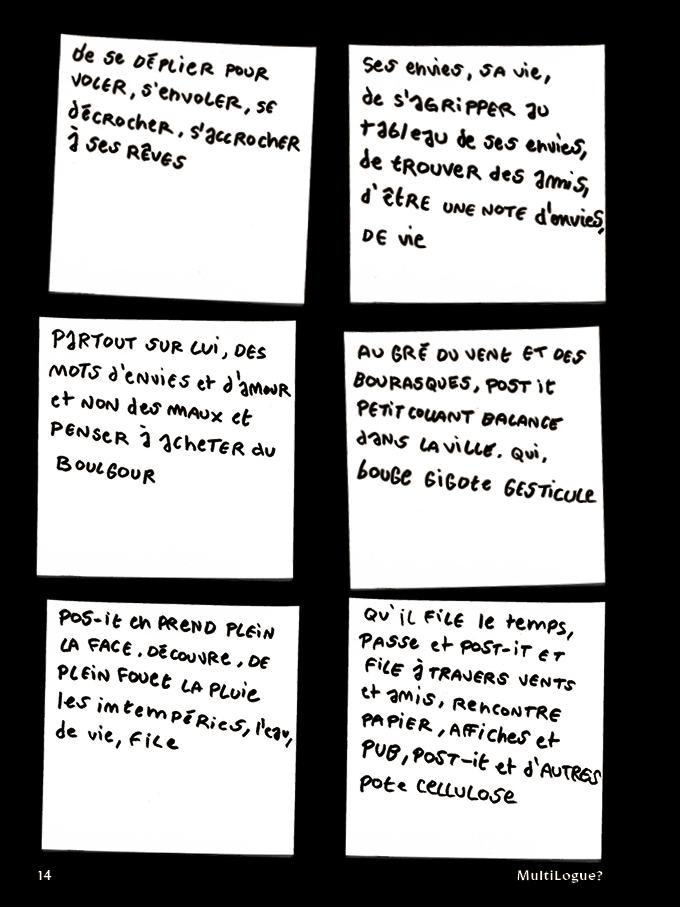 de se DÉPLIER POUR
VOLER, s'envoler, se
décrocher, s'accrocher
à ses RÊVES
ses envies, sa vie,
de s'agripper au
tableau de ses envies,
de trouver des amis,
d'être une note d'envies,
DE vie
PARTOUT SUR LUI, DES
MOTS d'ENVIES et d'amour
et NON des MAUX et
PENSER à acheter du
BOULGOUR
AU GRÉ DU VENT ET DES
BOURASQUES, POST it
PETIT COLLANT BALANCE
dans LA VILLE. Qui,
bouge GIGOte GESTICULE
POS-it en PREND PLEIN
LA FACE, DÉCOUVRE, DE
PLEIN FOUET LA PLUIE
les imtempéries, l'eau,
de vie, FILE
QU'il FILE le temps,
PASSE et POST-IT ET
FILE à TRAVERS VENTS
et amis, RENCONTRE
PAPIER, AFFiches et
PUB, POST-it et d'AUTRES
pote CELLULOSE
14
MultiLogue?